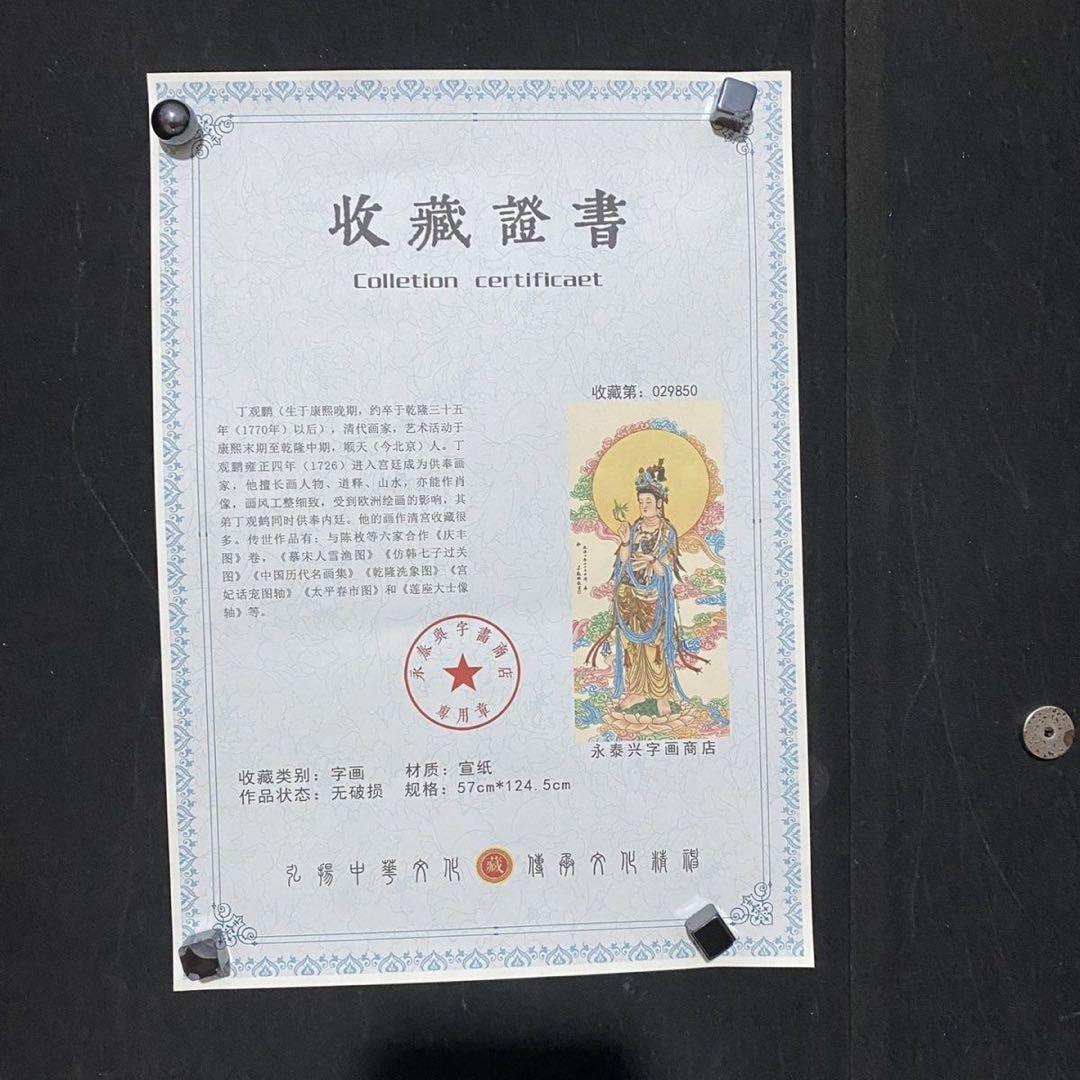 收藏證書
Colletion certificaet
收藏第：029850
丁观鹏（生于康熙晚期，约卒于乾隆三十五
年（1770年）以后），清代画家，艺术活动于
康熙末期至乾隆中期，顺天（今北京）人。丁
观鹏雍正四年（1726）进入宫廷成为供奉画
家，他擅长画人物、道释、山水，亦能作肖
像，画风工整细致，受到欧洲绘画的影响，其
弟丁观鹤同时供奉内廷。他的画作清宫收藏很
多。传世作品有：与陈枚等六家合作《庆丰
图》卷，《摹宋人雪渔图》《仿韩七子过关
图》《中国历代名画集》《乾隆洗象图》《宫
妃话宠图轴》《太平春市图》和《莲座大士像
轴》等。
永泰興字畵商店
專用章
永泰兴字画商店
收藏类别：字画 材质：宣纸
作品状态：无破损 规格：57cm*124.5cm
弘揚中華文化 藏 傳承文化精神